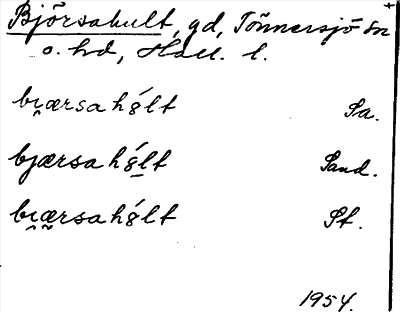 Björsahult, gd, Tönnersjö sn
o. hd, Hall. l.
bi̯ærsahó̤lt Sa.
bjærsahó̤lt Sand.
bi̯æ̤rsahó̤lt St.
1954.